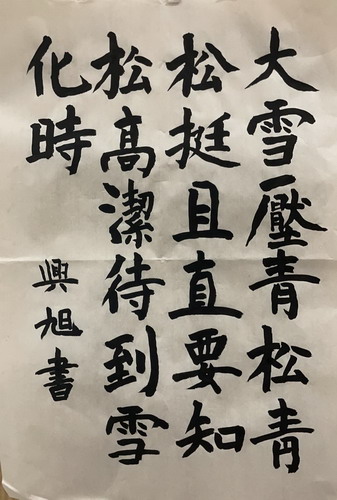 大雪壓青松青
松挺且直要知
松高潔待到雪
化時
興旭書